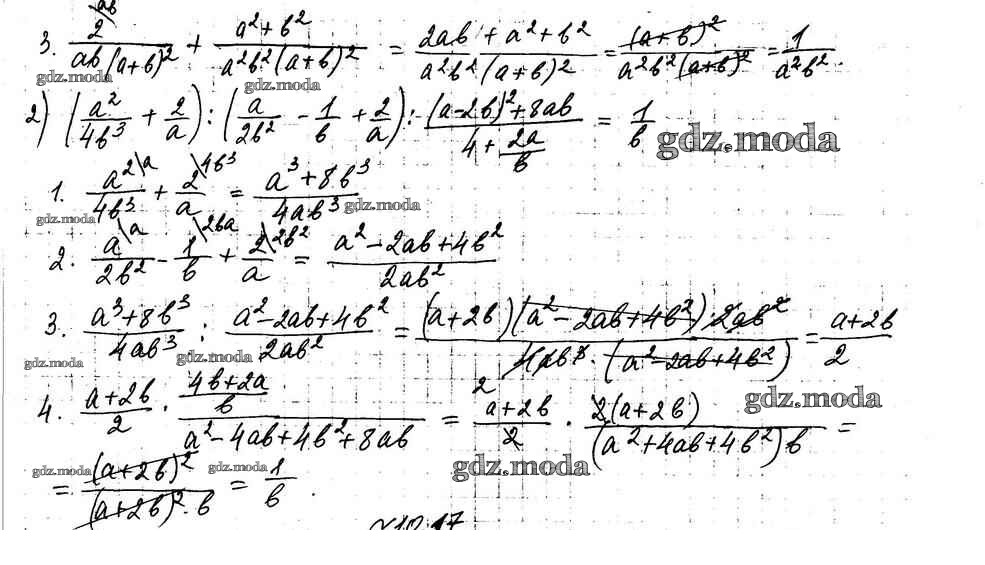 3. 2\ab / ab(a+b)² + a²+b² / a²b²(a+b)² = 2ab+a²+b² / a²b²(a+b)² = (a+b)² / a²b²(a+b)² = 1 / a²b².
gdz.moda gdz.moda
2) (a²/4b³ + 2/a) : (a/2b² - 1/b + 2/a) : (a-2b)²+8ab / 4+2a/b = 1/b
gdz.moda
1. a²\a / 4b³ + 2\4b³ / a = a³+8b³ / 4ab³
gdz.moda gdz.moda
2. a\a / 2b² - 1\2ba / b + 2\2b² / a = a²-2ab+4b² / 2ab²
3. a³+8b³ / 4ab³ : a²-2ab+4b² / 2ab² = (a+2b)(a²-2ab+4b²) 2ab² / 4ab³ · (a²-2ab+4b²) = a+2b / 2
gdz.moda gdz.moda
4. a+2b / 2 · 4b+2a / b / a²-4ab+4b²+8ab = a+2b / 2 · 2(a+2b) / (a²+4ab+4b²)b =
gdz.moda
gdz.moda gdz.moda gdz.moda
= (a+2b)² / (a+2b)²·b = 1/b.